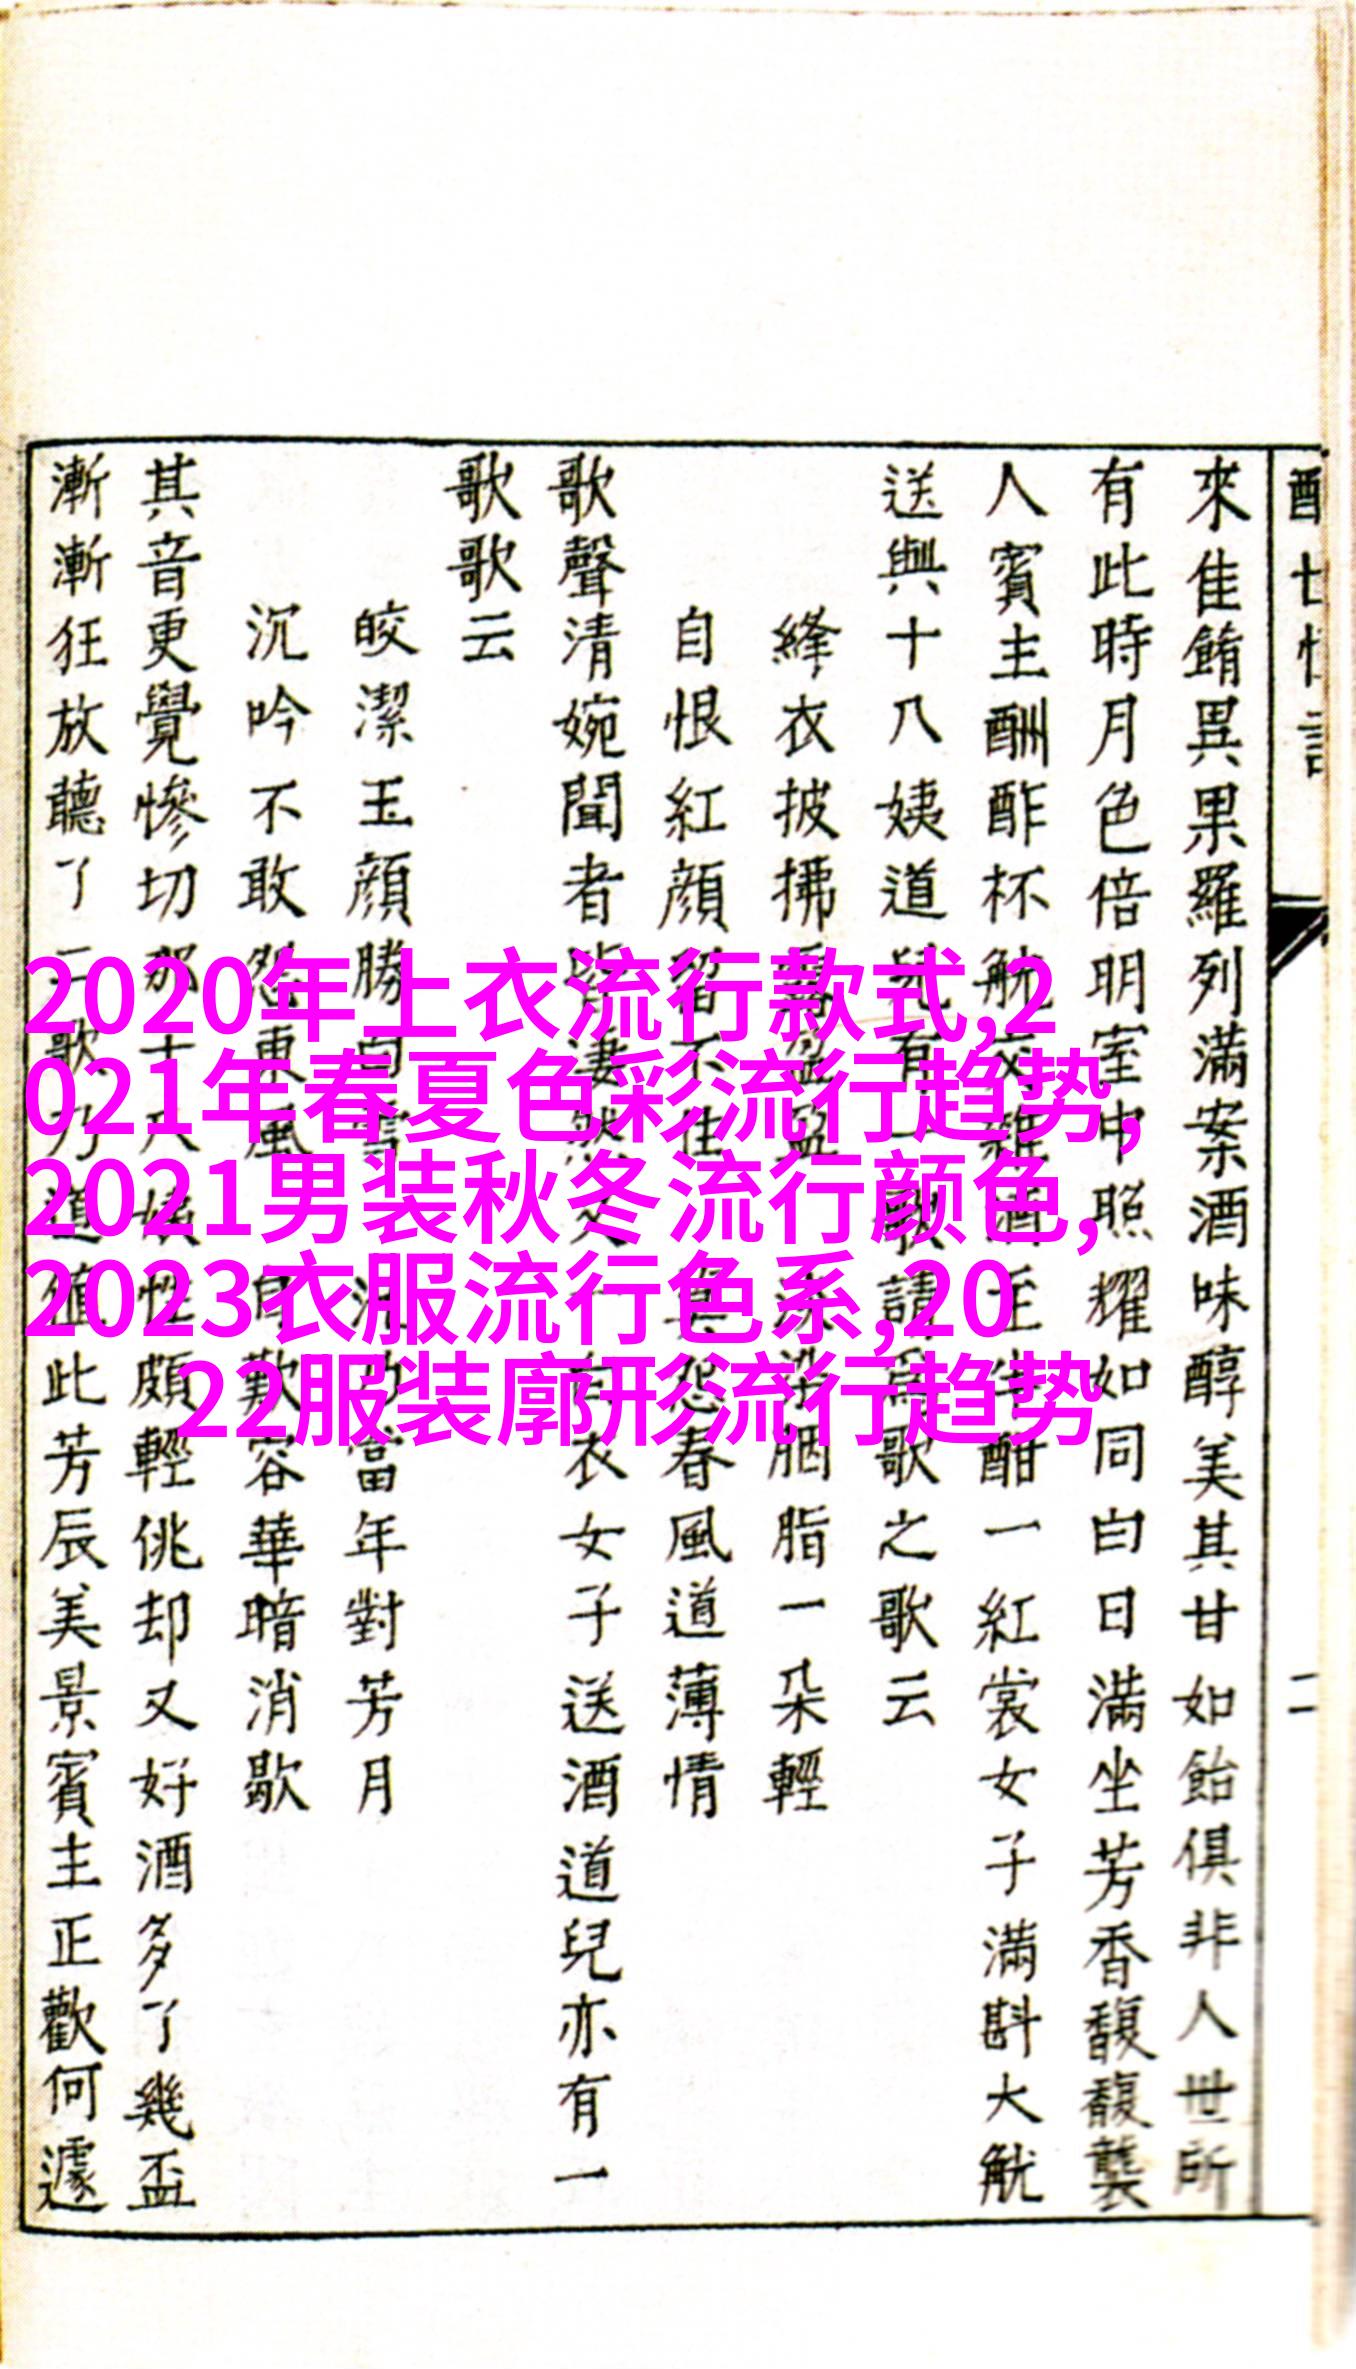 來佳餚異果羅列滿案酒味醇美其甘如飴俱非人世所
有此時月色倍明室中照耀如同白日滿坐芳香馥馥襲
人賓主酬酢杯觥交雜酒至半酣一紅裳女子滿斟大觥
送與十八姨道兒有一歌請爲歌之歌云
絳衣披拂露盈盈淡染胭脂一朵輕
自恨紅顔留不住莫怨春風道薄情
歌聲清婉聞者皆淒然又一白衣女子送酒道兒亦有一
歌歌云
皎潔玉顔勝白雪況乃當年對芳月
沉吟不敢怨東風自歎容華暗消歇
其音更覺慘切那十八姨性頗輕佻却又好酒多了幾盃
漸漸狂放聽了二歌乃道值此芳辰美景賓主正歡何遽
二
2020年上衣流行款式,2
021年春夏色彩流行趋势,
2021男装秋冬流行颜色,
2023衣服流行色系,20
22服装廓形流行趋势